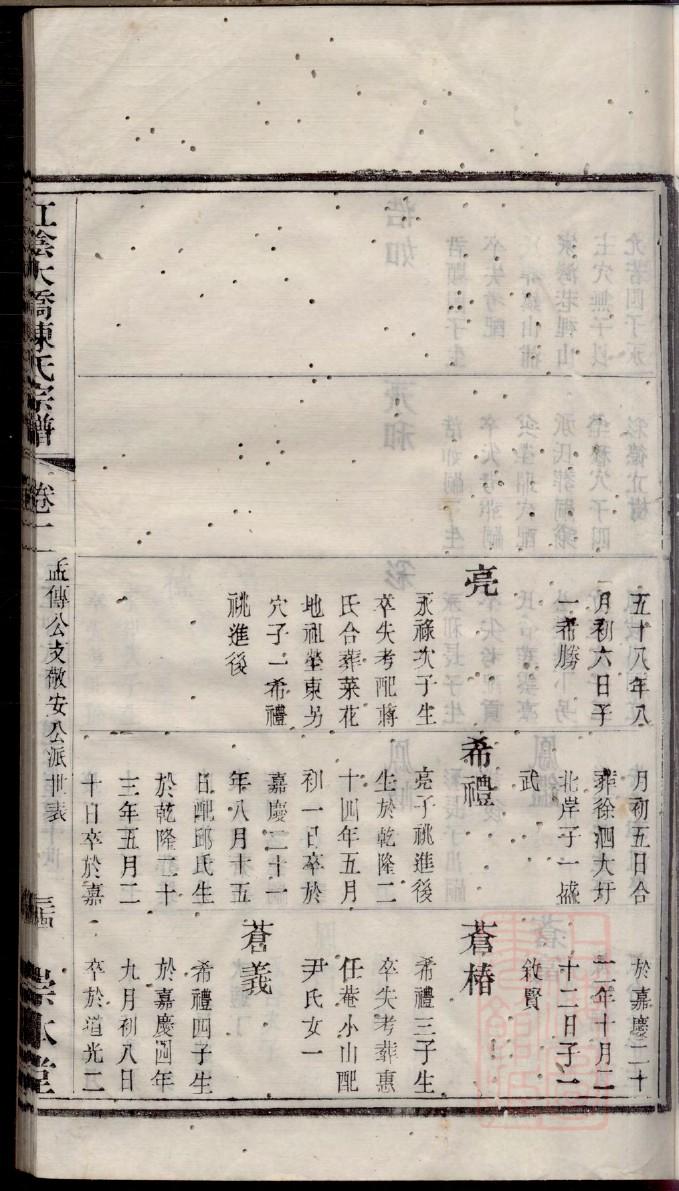 五十八年八
月初六日子
一希勝
亮
永祿次子生
卒失考配蔣
氏合葬菜花
地祖塋東另
穴子一希禮
祧進後
月初五日合
葬徐泗大圩
北岸子一盛
武
希禮
亮子祧進後
生於乾隆二
十四年五月
初一日卒於
嘉慶二十一
年八月十五
日配邱氏生
於乾隆二十
三年五月二
十日卒於嘉
於嘉慶二十
二年十月二
十二日子一
敘賢
蒼椿
希禮三子生
卒失考葬惠
任菴小山配
尹氏女一
蒼義
希禮四子生
於嘉慶四年
九月初八日
卒於道光二
江陰大橋陳氏宗譜
卷十一
孟傳公支敬安公派世表
崇本堂